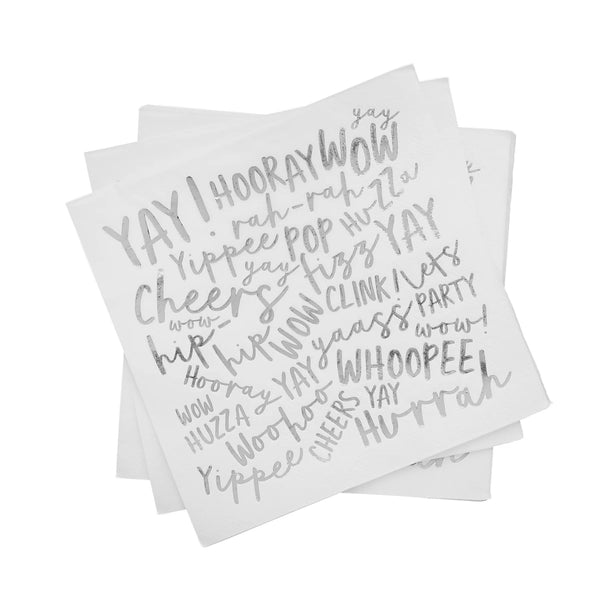 yay
YAY! HOORAY WOW
rah-rah
Yippee POP HUZZa
yay fizz YAY
Cheers
wow CLINK! lets
hip- hip WOW yaass PARTY
wow!
Hooray YAY WHOOPEE
WOW
HUZZA Woohoo CHEERS YAY Hurrah
Yippee